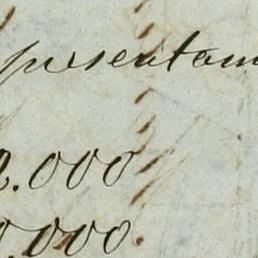 presentam
2.000
0.000.